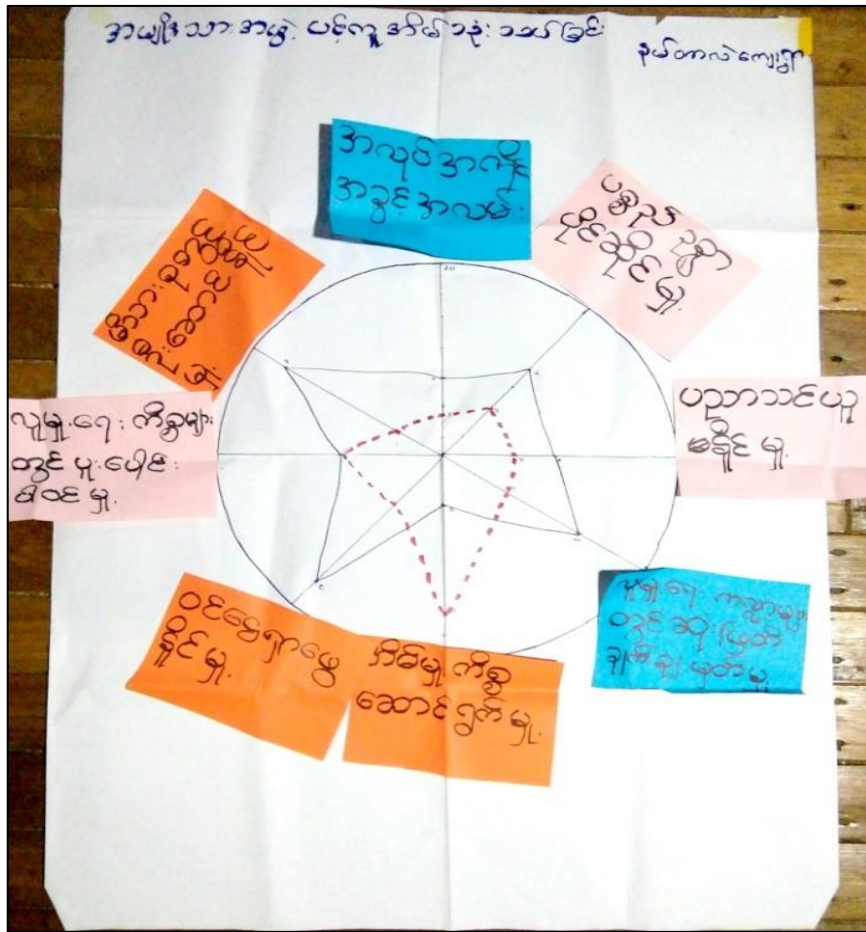 အမျိုးသားအဖွဲ့ ပင့်ကူအိမ်
နမ်တာလဲကျေးရွာ
အလုပ်အကိုင်
အခွင့်အလမ်း
ပစ္စည်းဥစ္စာ
ပိုင်ဆိုင်မှု
ပညာသင်ယူ
နိုင်မှု
လူမှုရေးကိစ္စများ
တွင်ဆုံးဖြတ်
ချက်ချမှတ်မှု
အိမ်မှုကိစ္စ
ဆောင်ရွက်မှု
ဝင်ငွေရှာဖွေ
နိုင်မှု
လူမှုရေးကိစ္စများ
တွင်ပူးပေါင်း
ပါဝင်မှု
10